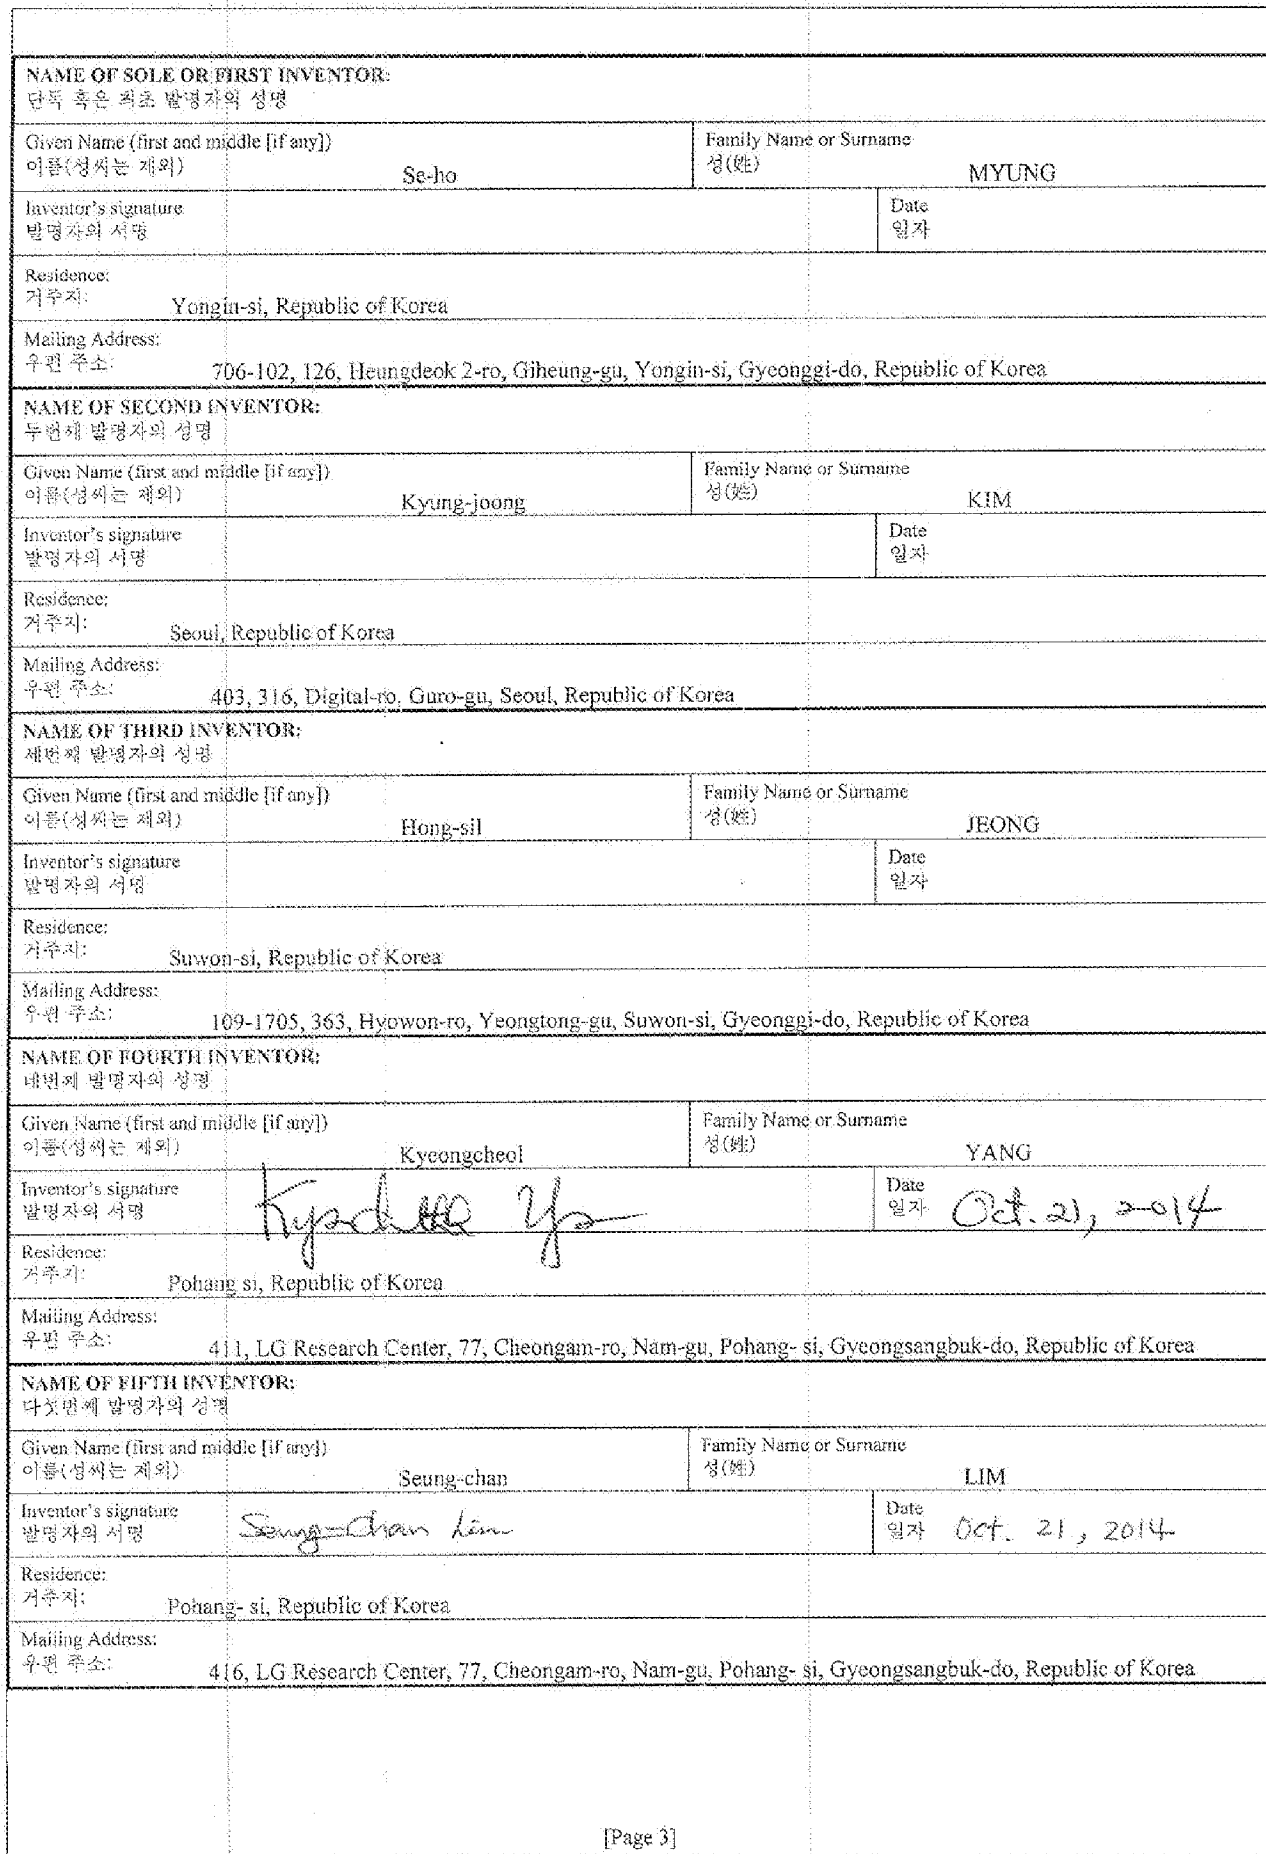 NAME OF SOLE OR FIRST INVENTOR:
단독 혹은 최초 발명자의 성명
Given Name (first and middle [if any])
이름(성씨는 제외) Se-ho
Family Name or Surname
성(姓) MYUNG
Inventor's signature
발명자의 서명
Date
일자
Residence:
거주지: Yongin-si, Republic of Korea
Mailing Address:
우편 주소: 706-102, 126, Heungdeok 2-ro, Giheung-gu, Yongin-si, Gyeonggi-do, Republic of Korea
NAME OF SECOND INVENTOR:
두번째 발명자의 성명
Given Name (first and middle [if any])
이름(성씨는 제외) Kyung-joong
Family Name or Surname
성(姓) KIM
Inventor's signature
발명자의 서명
Date
일자
Residence:
거주지: Seoul, Republic of Korea
Mailing Address:
우편 주소: 403, 316, Digital-ro, Guro-gu, Seoul, Republic of Korea
NAME OF THIRD INVENTOR:
세번째 발명자의 성명
Given Name (first and middle [if any])
이름(성씨는 제외) Hong-sil
Family Name or Surname
성(姓) JEONG
Inventor's signature
발명자의 서명
Date
일자
Residence:
거주지: Suwon-si, Republic of Korea
Mailing Address:
우편 주소: 109-1705, 363, Hyowon-ro, Yeongtong-gu, Suwon-si, Gyeonggi-do, Republic of Korea
NAME OF FOURTH INVENTOR:
네번째 발명자의 성명
Given Name (first and middle [if any])
이름(성씨는 제외) Kyeongcheol
Family Name or Surname
성(姓) YANG
Inventor's signature
발명자의 서명
Date
일자 Oct. 21, 2014
Residence:
거주지: Pohang si, Republic of Korea
Mailing Address:
우편 주소: 411, LG Research Center, 77, Cheongam-ro, Nam-gu, Pohang- si, Gyeongsangbuk-do, Republic of Korea
NAME OF FIFTH INVENTOR:
다섯번째 발명자의 성명
Given Name (first and middle [if any])
이름(성씨는 제외) Seung-chan
Family Name or Surname
성(姓) LIM
Inventor's signature
발명자의 서명 Seung-Chan Lim
Date
일자 Oct. 21, 2014
Residence:
거주지: Pohang- si, Republic of Korea
Mailing Address:
우편 주소: 416, LG Research Center, 77, Cheongam-ro, Nam-gu, Pohang- si, Gyeongsangbuk-do, Republic of Korea
[Page 3]